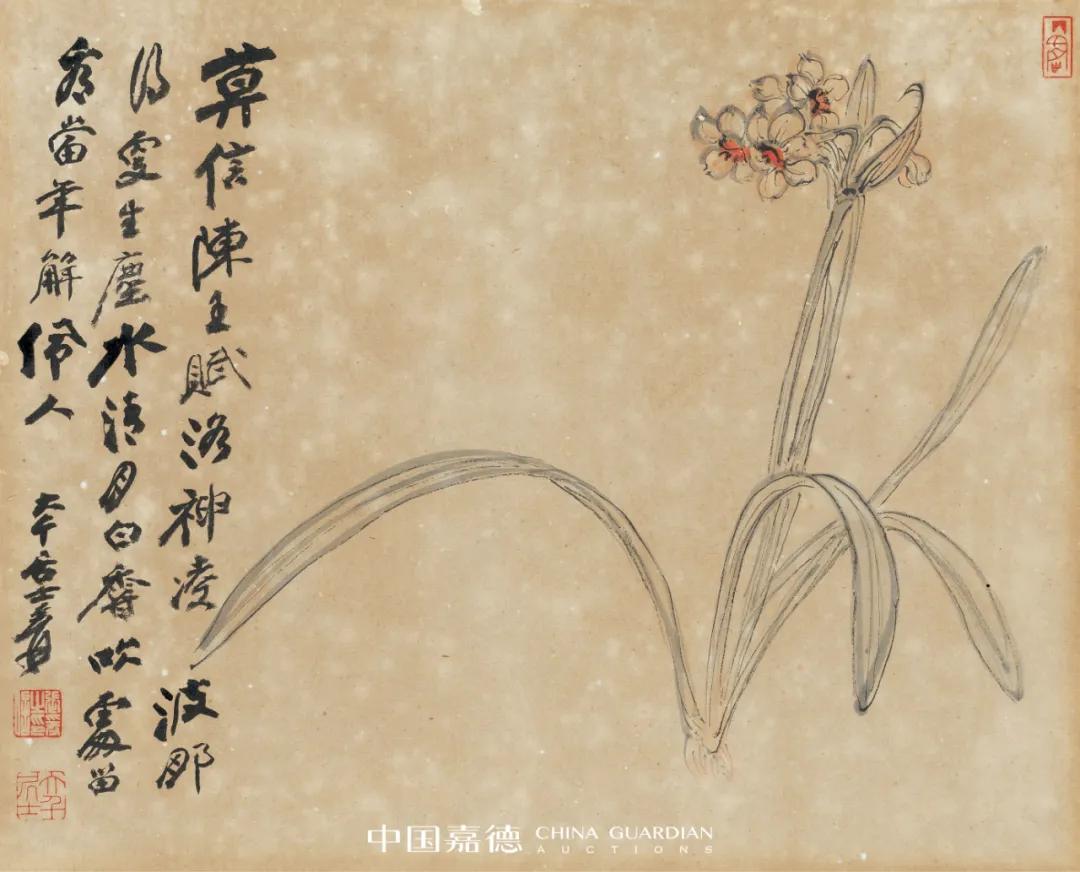 莫信陳王賦洛神凌波那
得更生塵水清月白香吹處留
看當年解佩人
大千居士爰
大千居士
中国嘉德 CHINA GUARDIAN
AUCTIONS